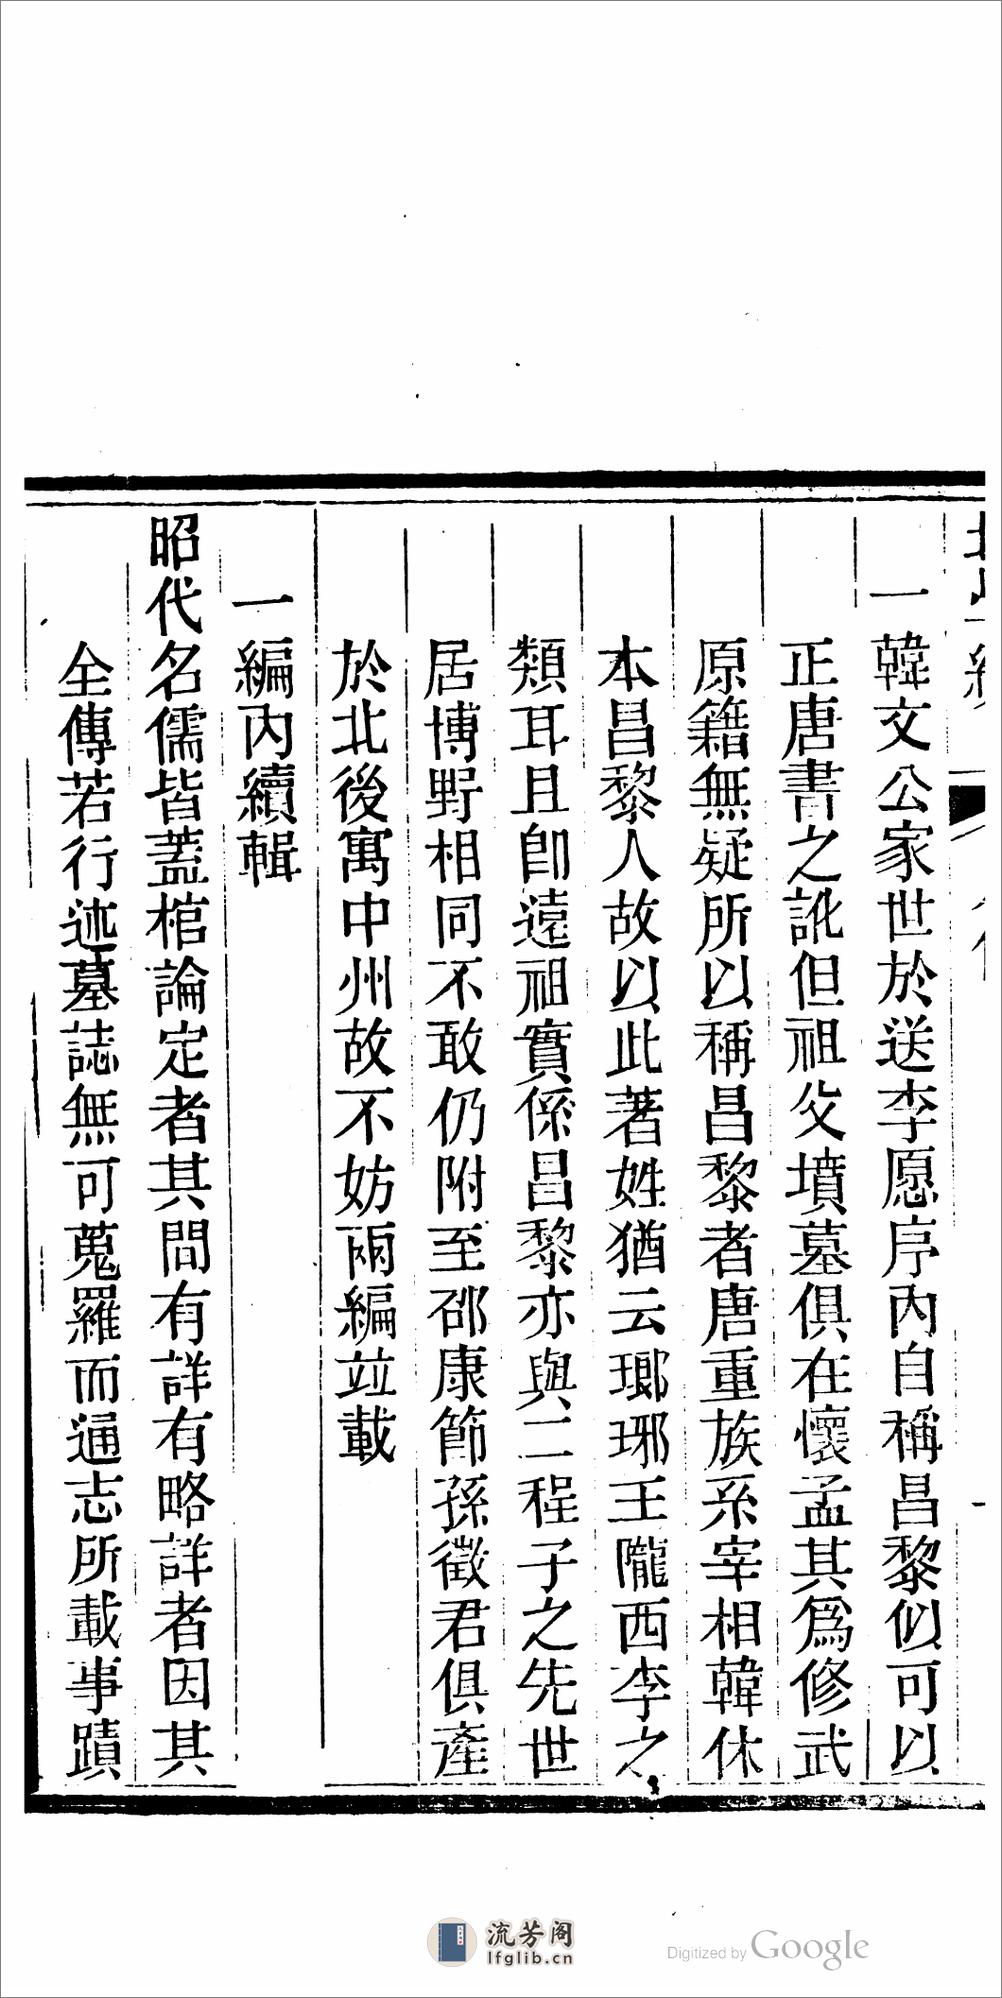 一韓文公家世於送李愿序內自稱昌黎似可以
正唐書之訛但祖父墳墓俱在懷孟其爲修武
原籍無疑所以稱昌黎者唐重族系宰相韓休
本昌黎人故以此著姓猶云瑯琊王隴西李之
類耳且卽遠祖實係昌黎亦與二程子之先世
居博野相同不敢仍附至邵康節孫徵君俱產
於北後寓中州故不妨兩編竝載
一編內續輯
昭代名儒皆蓋棺論定者其間有詳有略詳者因其
全傳若行述墓誌無可蒐羅而通志所載事蹟
流芳阁
lfglib.cn
Digitized by Google